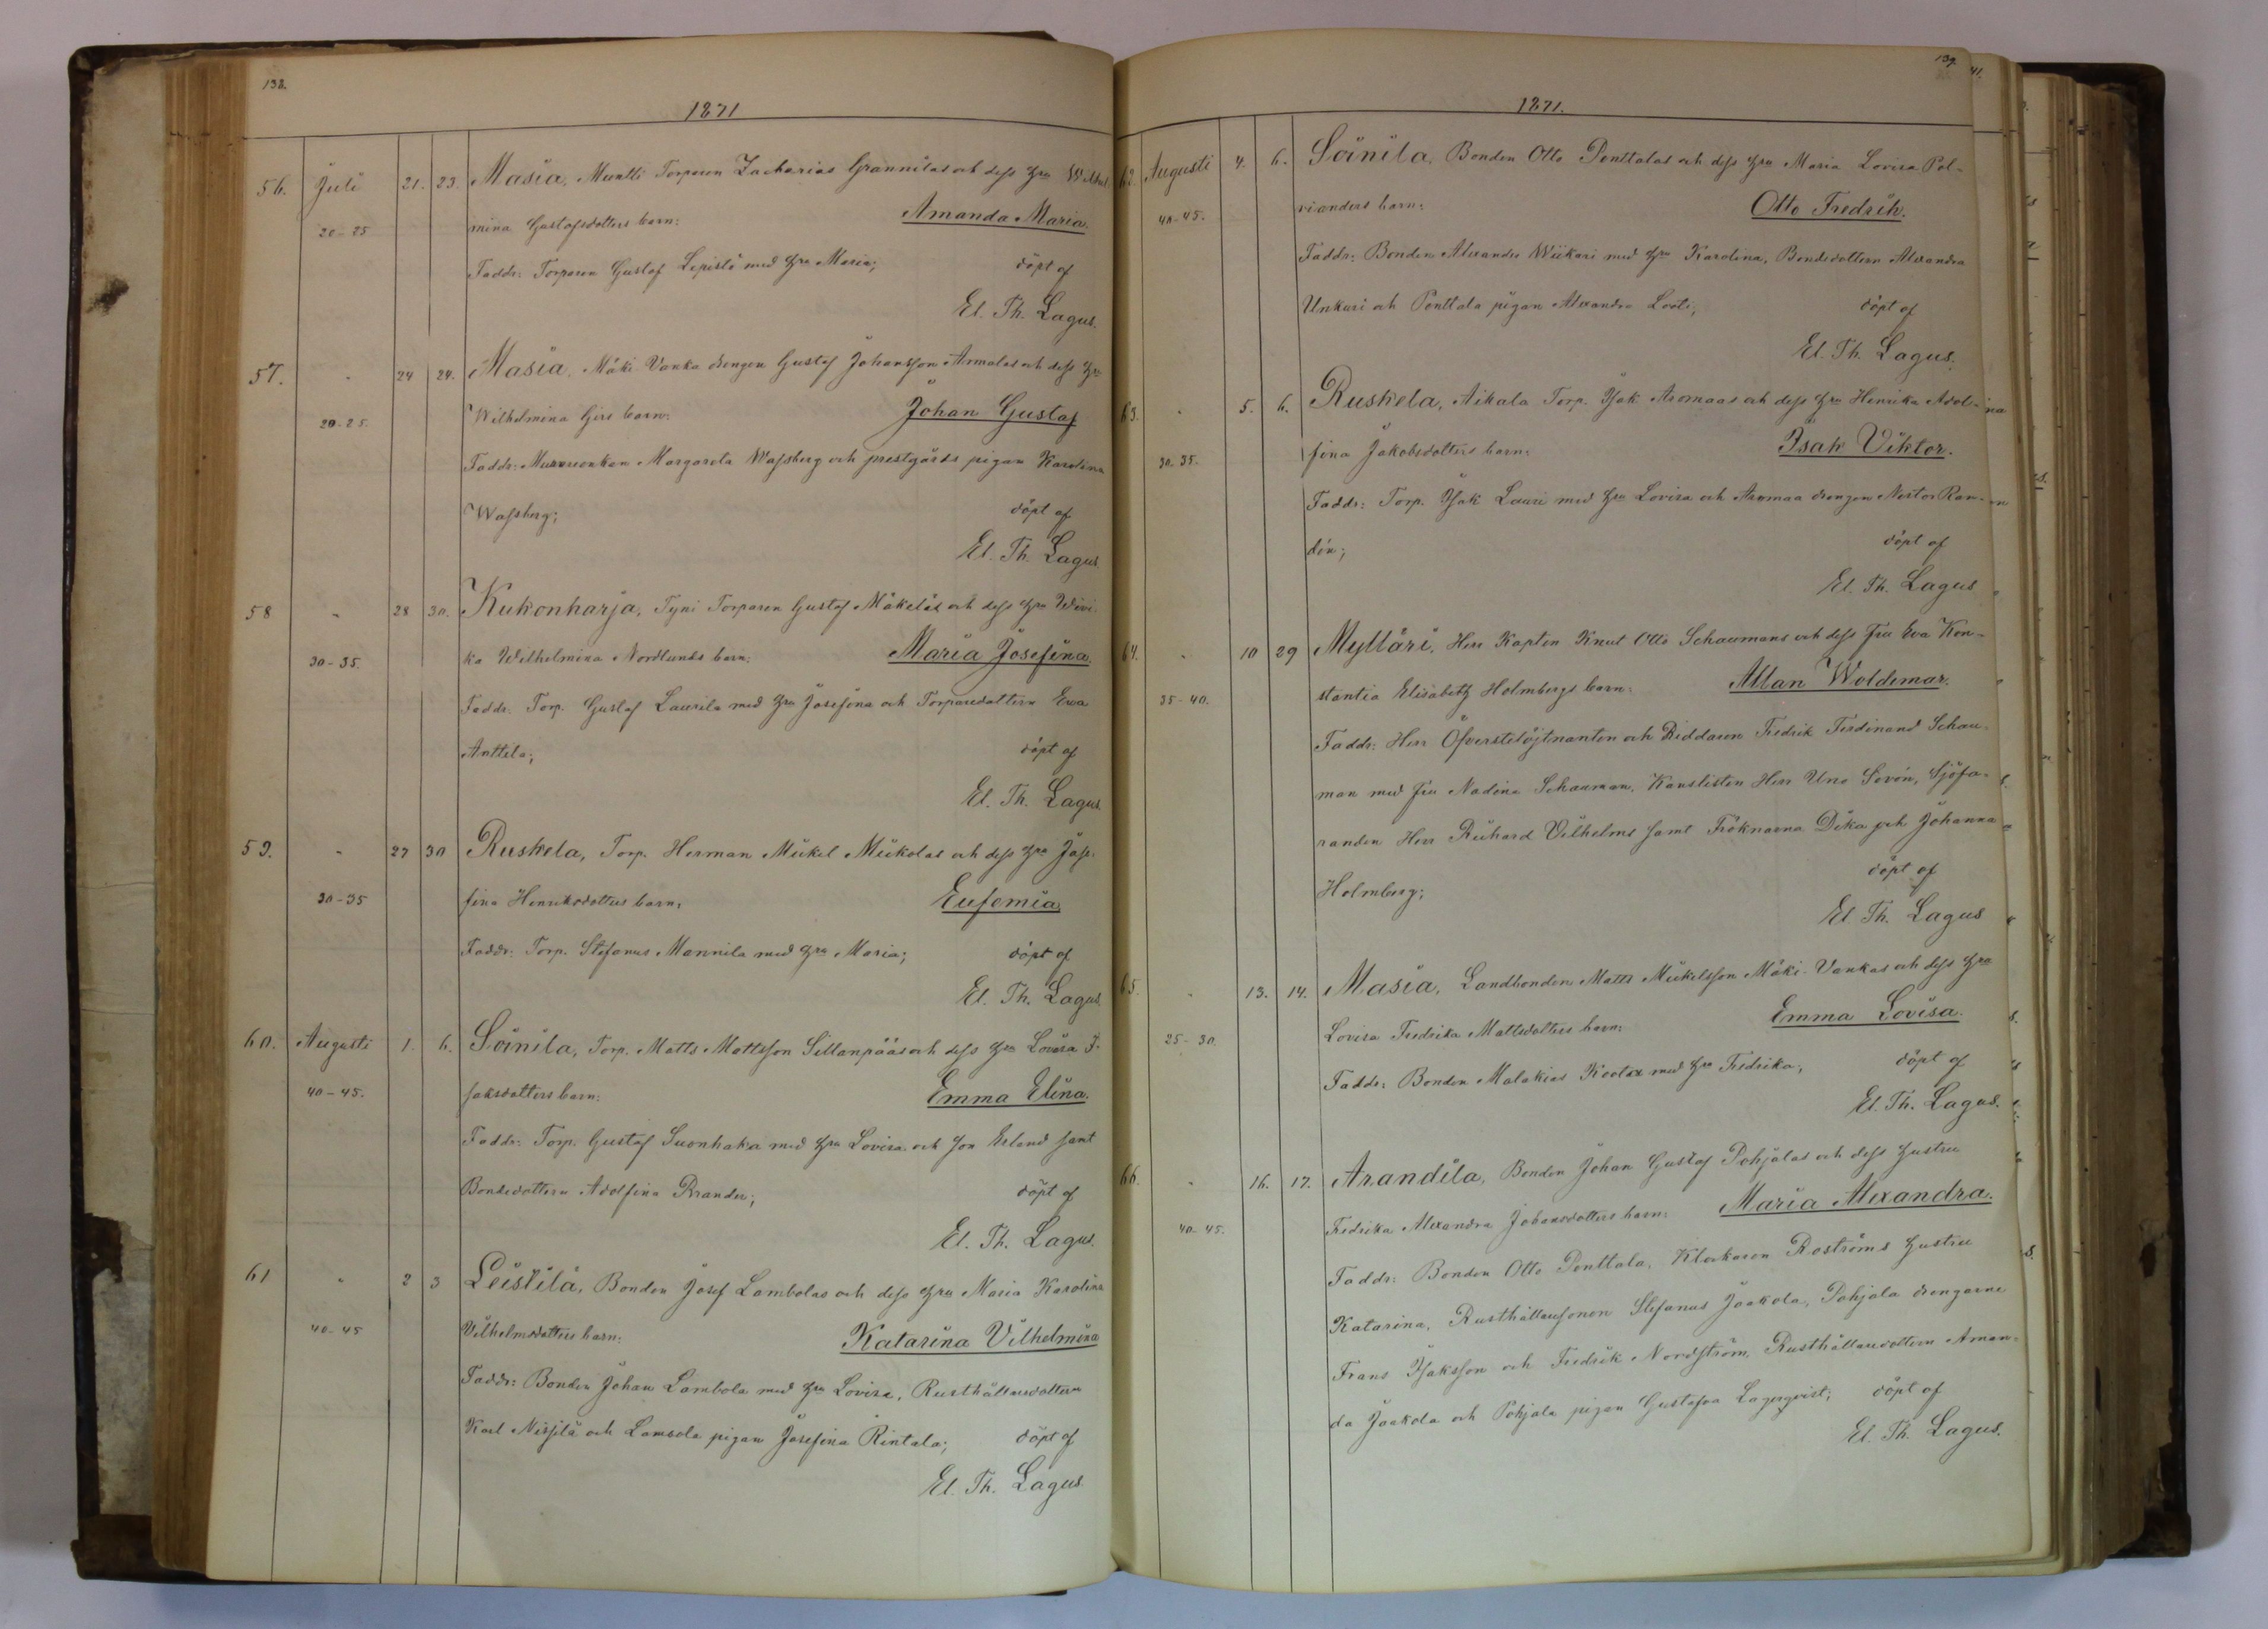 138.
1871
56. Juli 21. 23. Masia, Muntti Torparen Zacharias Grannilas och dess Hru Wilhel
20-25 mina Gustafsdotters barn: Amanda Maria.
Faddr: Torparen Gustaf Lepistö med Hru Maria; döpt af
El. Th. Lagus.
57. " 24 24. Masia, Mäki Vanka drengen Gustaf Johansson Armalas och dess Hru
20-25. Wilhelmina Girs barn: Johan Gustaf
Faddr: Margareta Wassberg och prestgårds pigan Karolina
Wassberg; döpt af
El. Th. Lagus.
58 " 28 30. Kukonharja, Tyni Torparen Gustaf Mäkeläs och dess Hru Ulri-
30-35. ka Wilhelmina Nordlunds barn: Maria Josefina.
Faddr. Torp. Gustaf Laurila med Hru Josefina och Torparedottern Ewa
Anttila; döpt af
El. Th. Lagus
59. " 27 30 Ruskela, Torp. Herman Mickel Mickolas och dess Hru Jose-
30-35 fina Henriksdotters barn: Eufemia.
Faddr: Torp. Stefanus Mannila med Hru Maria; döpt af
El. Th. Lagus
60. Augusti 1. 6. Soinila, Torp. Matts Mattsson Sillanpääs och dess Hru Lovisa I-
40-45. saksdotters barn: Emma Elina.
Faddr: Torp. Gustaf Suonhaka med Hru Lovisa och son Erland samt
Bondedottern Adolfina Prander; döpt af
El. Th. Lagus.
61 " 2 3 Leistilä, Bonden Josef Lambolas och dess Hru Maria Karolina
40-45 Vilhelmsdotters barn: Katarina Vilhelmina
Faddr: Bonden Johan Lambola med Hru Lovisa, Rusthållaredottern
Karl Nissilä och Lambola pigan Josefina Rintala; döpt af
El. Th. Lagus.
139.
41.
1871.
62. Augusti 4. 6. Soinila, Bonden Otto Penttalas och dess Hru Maria Lovisa Pol-
40-45. vianders barn: Otto Fredrik.
Faddr: Bonden Alexander Wiikari med Hru Karolina, Bondedottern Alexandra
Unkuri och Penttala pigan Alexandra Looti; döpt af
El. Th. Lagus.
63. " 5. 6. Ruskela, Aikala Torp. Isak Aromaas och dess Hru Henrika Adol-
30-35. fina Jakobsdotters barn: Isak Viktor.
Faddr: Torp. Isak Lauri med Hru Lovisa och Aromaa drengen Nestor Ran-
dén; döpt af
El. Th. Lagus
64. " 10 29 Mylläri, Herr Kapten Knut Otto Schaumans och dess Fru Eva Kon-
35-40. stantia Elisabeth Holmbergs barn: Allan Woldemar.
Faddr: Herr Öfverstelöjtnanten och Riddaren Fredrik Ferdinand Schau-
man med Fru Nadina Schauman, Kanslisten Herr Uno Serén, Sjöfa-
randen Herr Richard Vilhelms samt Fröknarna Dika och Johanna
Holmberg; döpt af
El. Th. Lagus
65. " 13. 14. Masia, Landbonden Matts Mickelsson Mäki-Vankas och dess Hru
25-30. Lovisa Fredrika Mattsdotters barn: Emma Lovisa.
Faddr: Bonden Malakias Koota med Hru Fredrika; döpt af
El. Th. Lagus.
66. " 16. 17. Arandila, Bonden Johan Gustaf Pohjalas och dess Hustru
40-45. Fredrika Alexandra Johansdotters barn: Maria Alexandra.
Faddr: Bonden Otto Penttala, Klockaren Roströms Hustru
Katarina, Rusthållaresonen Stefanus Jaakola, Pohjala drengarne
Frans Isaksson och Fredrik Nordström, Rusthållaredottern Aman-
da Jaakola och Pohjala pigan Gustafva Lagerqvist; döpt af
El. Th. Lagus.